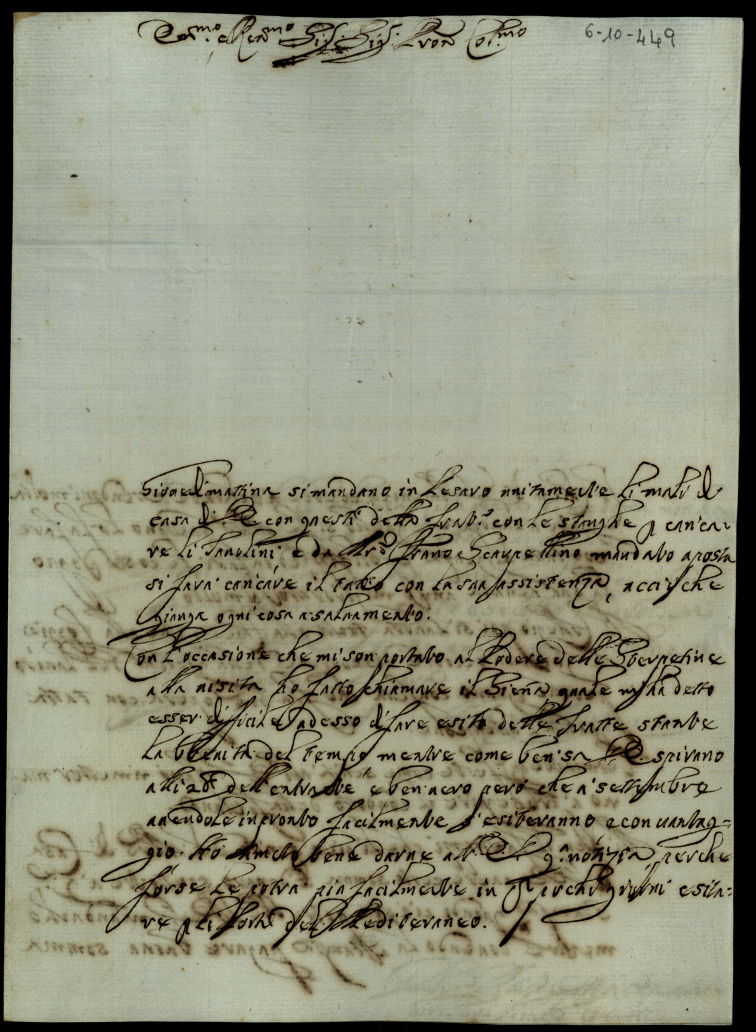 Em.mo e Ren.mo Sig.r Sig.r Pron Col.mo
6-10-449
Giovedi mattina si mandano in Pesaro unitamente li muli di
casa di con questi della fratt.a con le stanghe p carica-
re li Tavolini e da Scarpellino mandato a posta
si fara caricare il tutto con la sua assistenza, accio che
Gianga ogni cosa a saluamento.
Con l'occasione che mi son portato al Podere delle
alla uisita ho fatto chiamare il quale mi ha detto
esser dificile adesso di fare esito delle fratte stante
la breuita del tempo mentre come ben sa spirano
alli dell'entrante e ben uero però che a settembre
auendole in pronto facilmente s'esiteranno e con uantag-
gio. Ho bene darne all' notizia perche
forse le potra piu facilmente in esita-
re p li Porti del Mediteraneo.